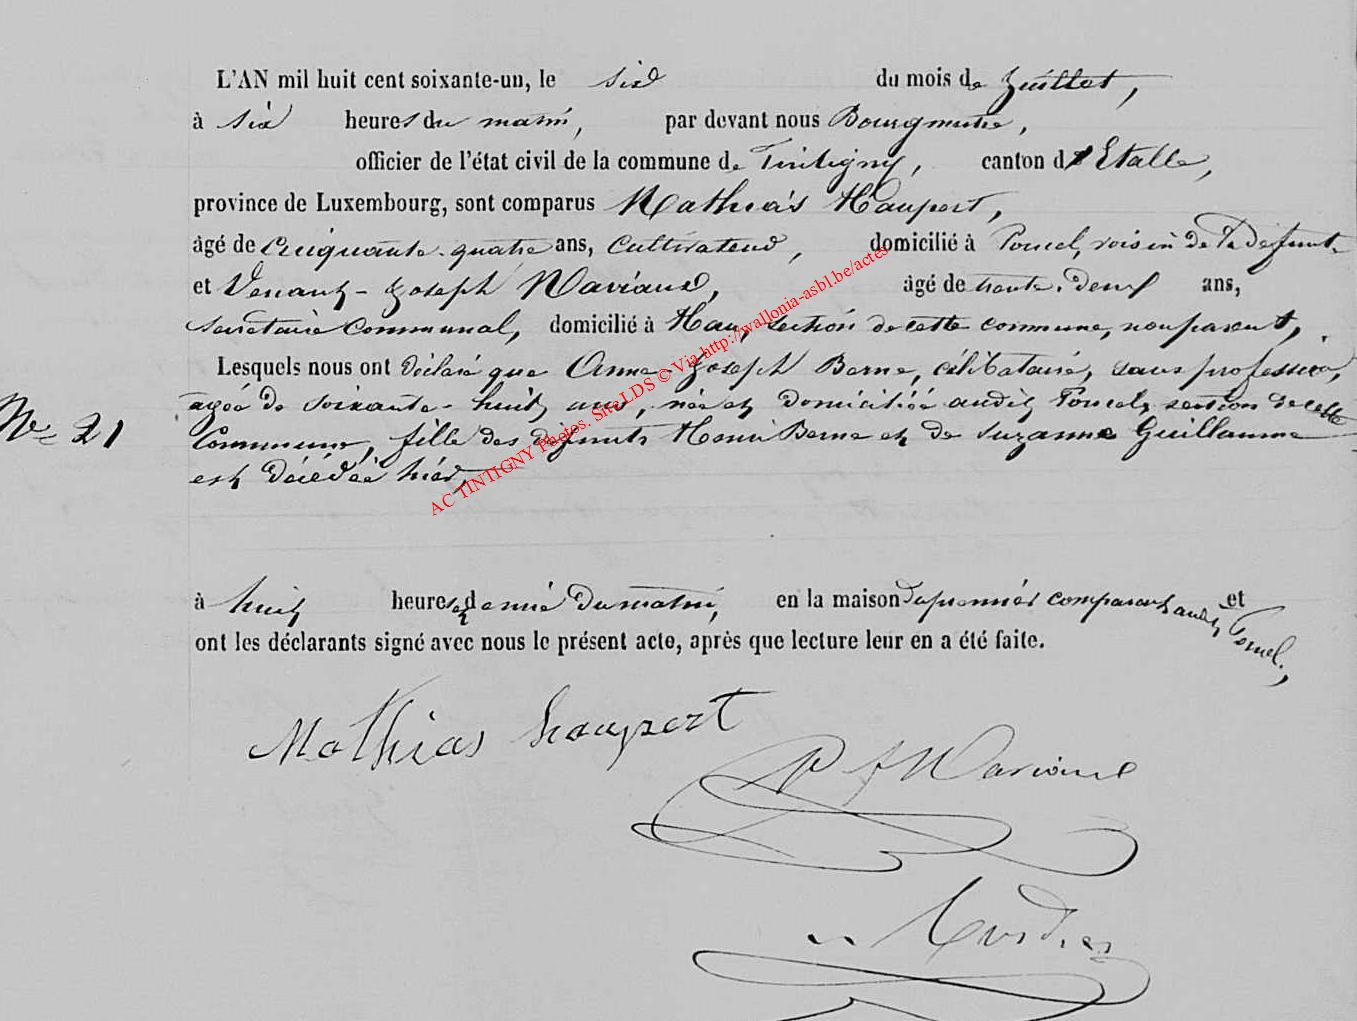 L'AN mil huit cent soixante-un, le six du mois de Juillet,
à six heures du matin, par devant nous Bourgmestre,
officier de l'état civil de la commune de Tintigny, canton d'Etalle,
province de Luxembourg, sont comparus Mathias Haupert,
âgé de cinquante-quatre ans, Cultivateur, domicilié à Poncel, voisin de la défunte
et Venant-Joseph Naviaux, âgé de trente-deux ans,
Secrétaire Communal, domicilié à Han, section de cette commune, non parent,
Lesquels nous ont déclaré que Anne-Joseph Berne, célibataire, sans profession,
agée de soixante-huit ans, née et domiciliée audit Poncel, section de cette
N° 21
Commune, fille des défunts Henri Berne et de Suzanne Guillaume
est décédée hier,
à huit heures et demie du matin, en la maison du premier comparant audit Poncel, et
ont les déclarants signé avec nous le présent acte, après que lecture leur en a été faite.
Mathias haupert
AC TINTIGNY Photos. Site LDS © Via http://wallonia-asbl.be/actes